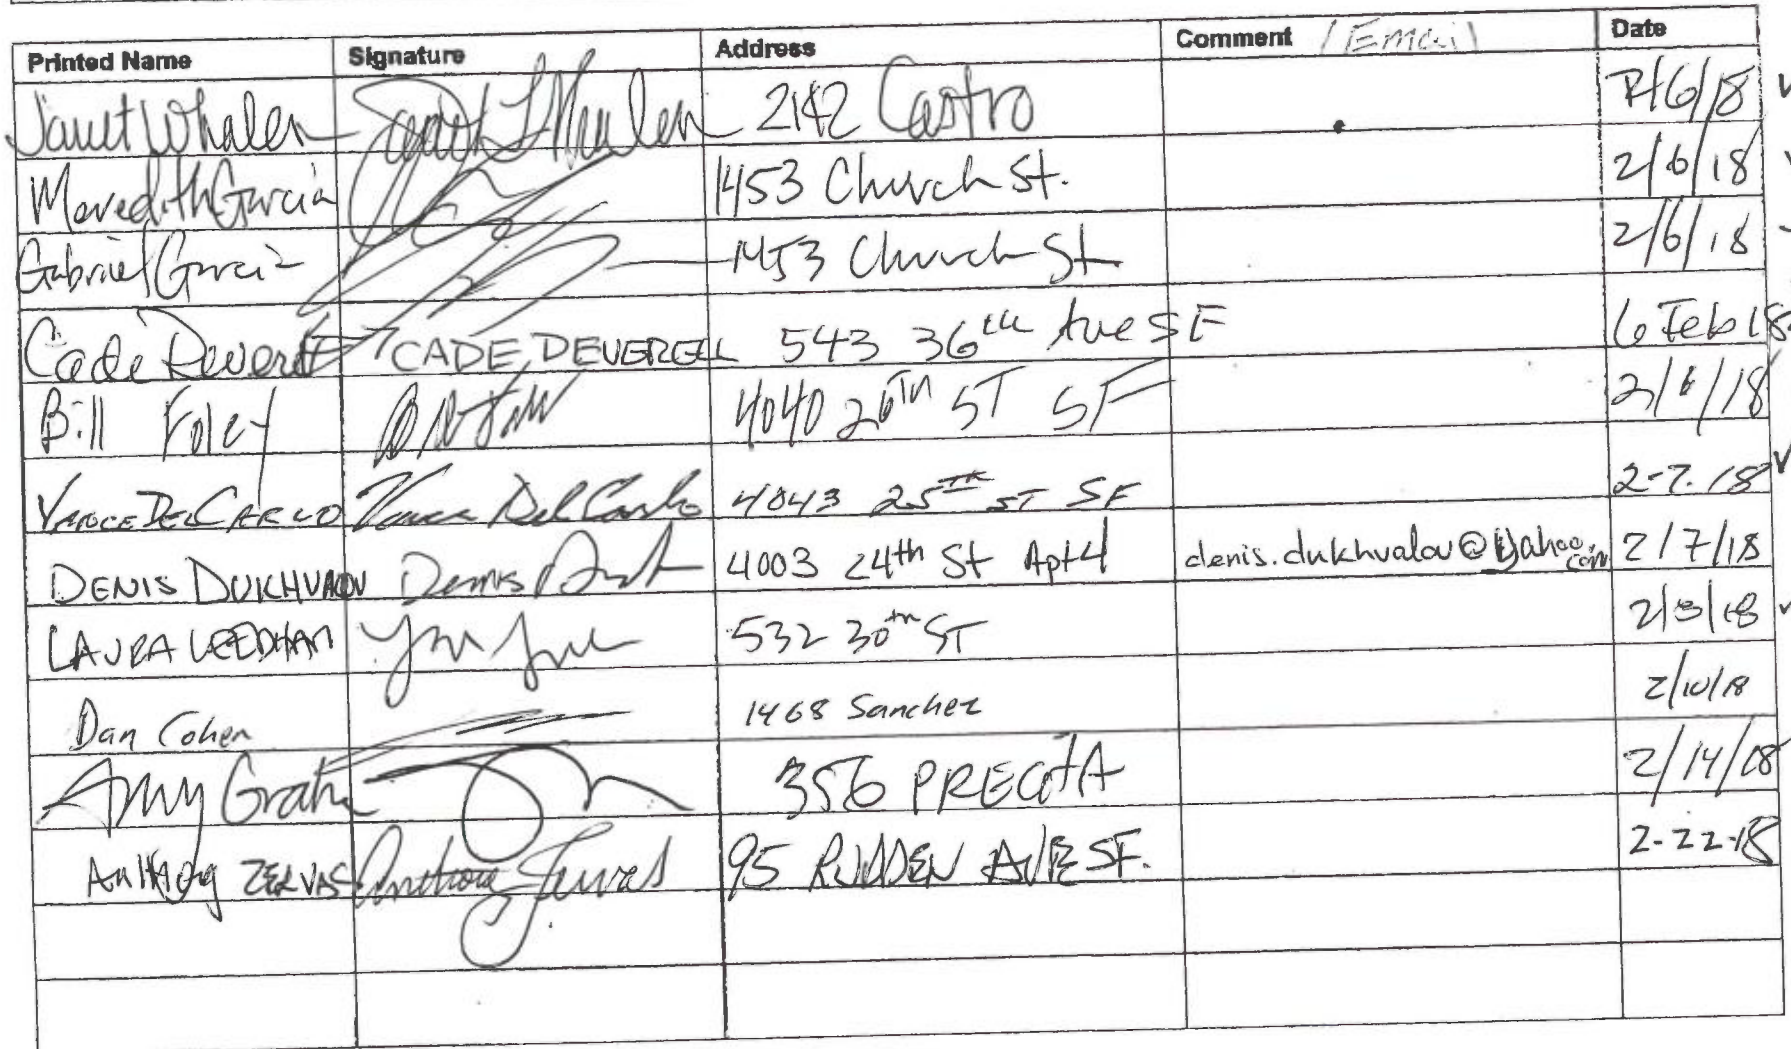 Printed Name Signature Address Comment / Email Date
Janet Whalen Janet L Whalen 2142 Castro /6/18
Meredith Garcia 1453 Church St. 2/6/18
Gabriel Garcia 1453 Church St 2/6/18
Cade Deverell CADE DEVERELL 543 36th Ave SF 6 Feb 18
Bill Foley 4040 26TH ST SF 2/6/18
VANCE DEL CARLO Vance Del Carlo 4043 25TH ST SF 2-7-18
DENIS DUKHVALOV Denis 4003 24th St Apt 4 denis.dukhvalov@yahoo.com 2/7/18
LAURA LEEDHAM 532 30th ST 2/8/18
Dan Cohen 1468 Sanchez 2/10/18
Amy 356 PRECITA 2/14/18
Anthony ZERVAS Anthony Zervas 95 AVE SF. 2-22-18